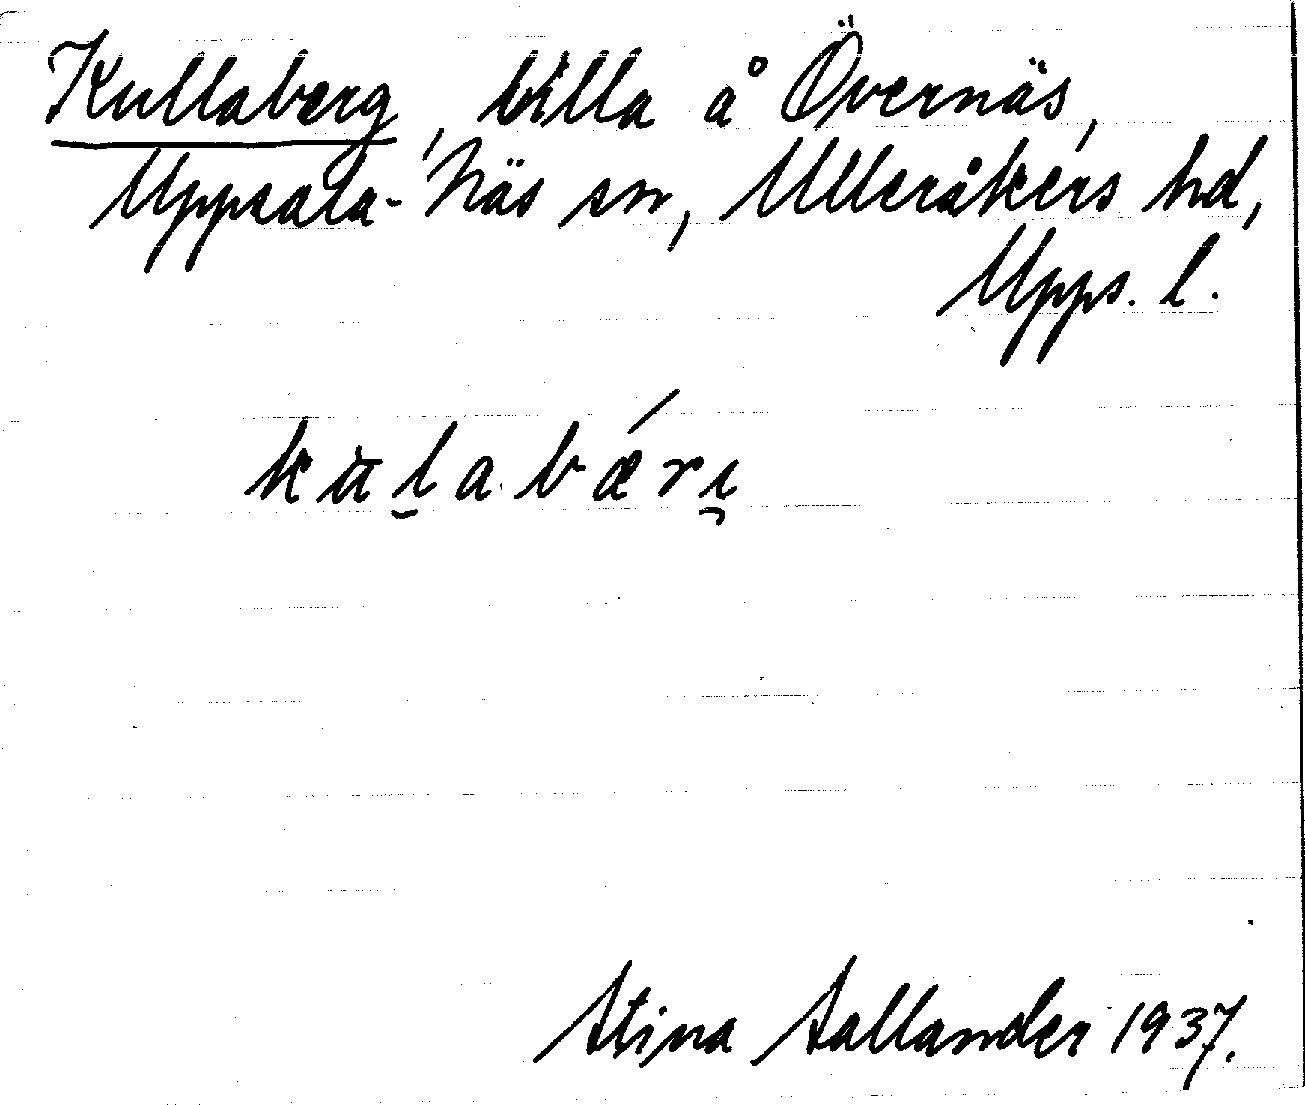 Kullaberg, villa å Övernäs,
Uppsala-Näs sn, Ulleråkers hd,
Upps. l.
kulabæri
Stina Sallander 1937.